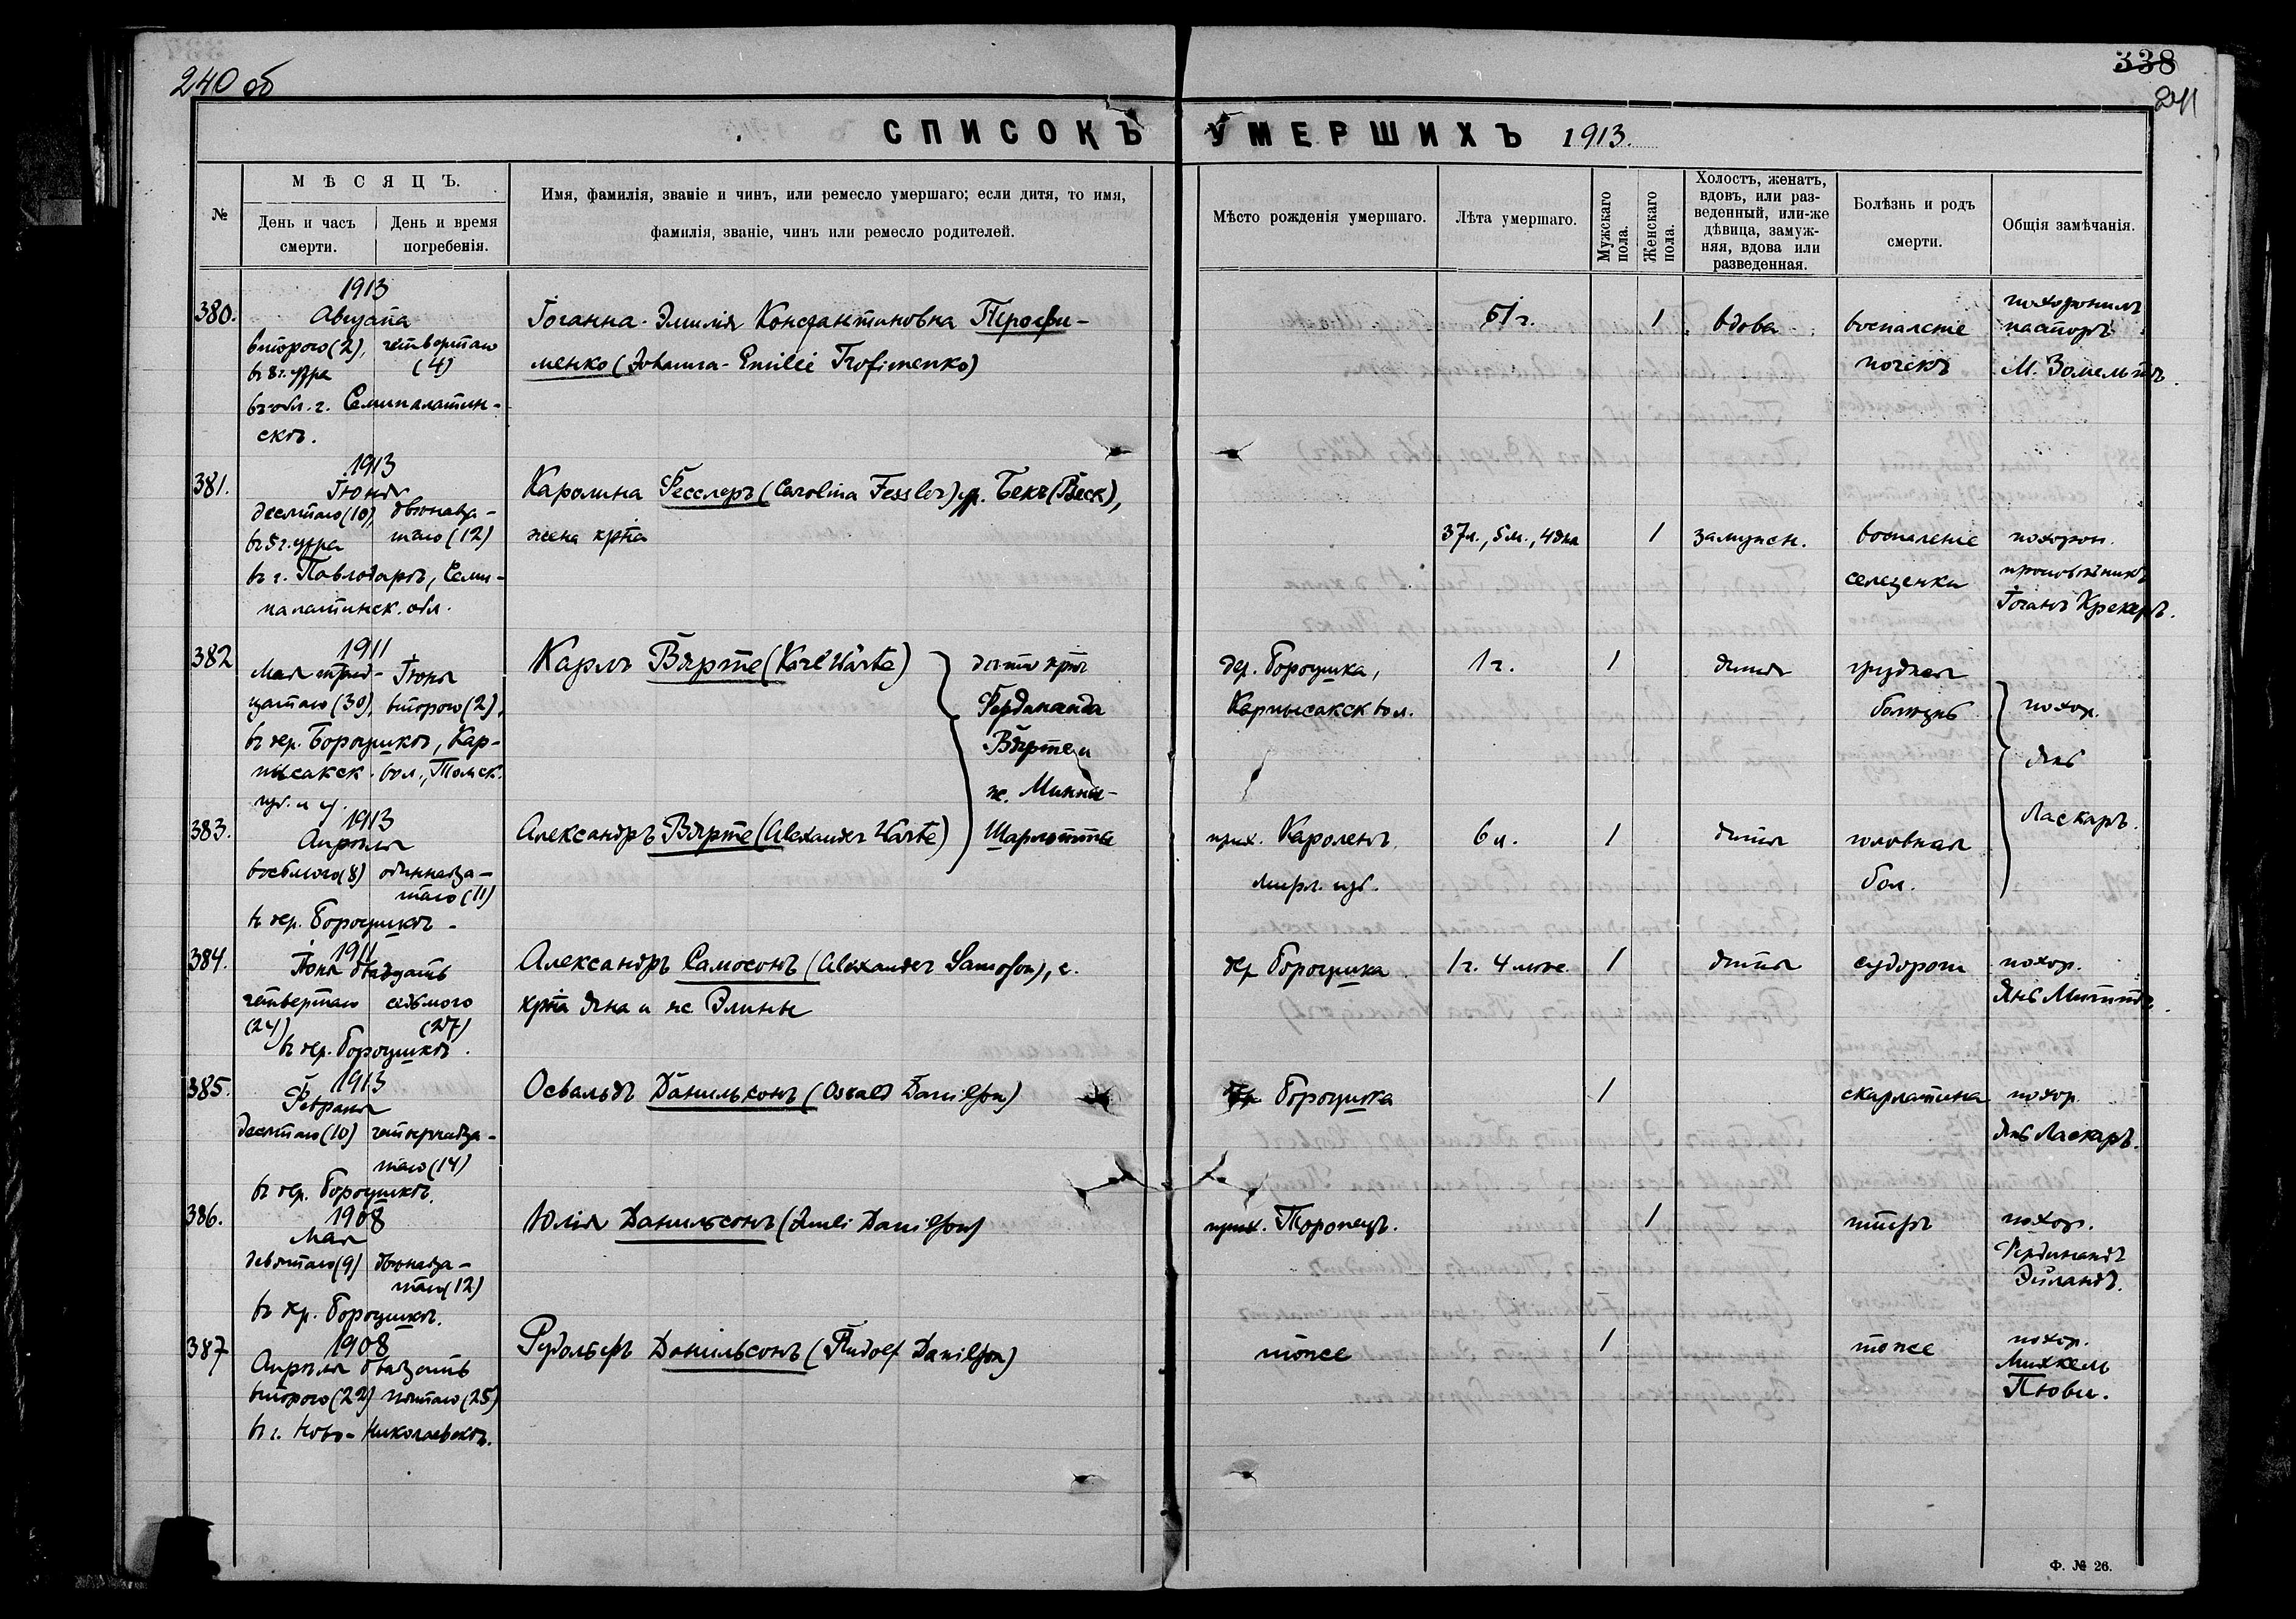 240 об
338
241
СПИСОКЪ УМЕРШИХЪ 1913.
№
МѢСЯЦЪ.
День и часъ смерти.
День и время погребенія.
Имя, фамилія, званіе и чинъ, или ремесло умершаго; если дитя, то имя,
фамилія, званіе, чинъ или ремесло родителей.
Мѣсто рожденія умершаго.
Лѣта умершаго.
Мужскаго пола.
Женскаго пола.
Холостъ, женатъ,
вдовъ, или раз-
веденный, или-же
дѣвица, замуж-
няя, вдова или
разведенная.
Болѣзнь и родъ
смерти.
Общія замѣчанія.
380.
1913
Августа
второго (2), четвертаго
въ 8 ч. утра (4)
въ обл. г. Семипалатин-
скѣ.
Іоганна-Эмилія Константиновна Трофи-
менко (Johanna-Emilie Trofimenko)
61 г.
1
вдова
воспаленіе
почекъ
похоронилъ
пасторъ
381.
1913
Іюня
десятаго (10), двѣнадца-
въ 5 ч. утра таго (12)
въ г. Павлодарѣ, Семи-
палатинск. обл.
Каролина Фесслеръ (Carolina Fessler) ур. Бекъ (Beck),
жена крна
37 л., 5 м., 4 дня
1
замужн.
воспаленіе
селезенки
похорон.
проповѣдникъ
Іоганъ Крекеръ.
382
1911
Мая трид- Іюня
цатаго (30), второго (2),
въ дер. Бороушкѣ, Кар-
пысакск. вол., Томск.
губ. и у.
Карлъ Вярте (Karl Wärte)
дѣти крна
Фердинанда
Вярте и
ж. Минны-
Шарлотты
дер. Бороушка,
Карпысакск вол.
1 г.
1
дитя
грудная
болѣзнь
похор.
Янъ
Ласкаръ.
383.
1913
Апрѣля
восьмого (8) одиннадца-
таго (11)
въ дер. Бороушкѣ
Александръ Вярте (Alexander Wärte)
прих. Кароленъ
6 л.
1
дитя
головная
бол.
384.
1911
Іюня двадцать
четвертаго седьмого
(24) (27)
въ дер. Бороушкѣ.
Александръ Самосонъ (Alexander Samoson), с.
крна Яна и ж Элины
дер Бороушка
1 г. 4 мѣс.
1
дитя
судороги
похор.
385.
1913
Февраля
десятаго (10) четырнадца-
таго (14)
въ дер. Бороушкѣ.
Освальдъ Данильсонъ (Oswald Danilson)
Бороушка
1
скарлатина
похор
Янъ Ласкаръ.
386.
1908
Мая
девятаго (9) двѣнадца-
таго (12)
въ др. Бороушкѣ.
Юлія Данильсонъ (Juuli Danilson)
прих. Торопецъ.
1
тифъ
похор.
Фердинандъ
Эйландъ.
387
1908
Апрѣля двадцать
второго (22) пятаго (25)
въ г. Ново-Николаевскѣ.
Рудольфъ Данильсонъ (Rudolf Danilson)
тоже
1
тоже
похор.
Михкель
Пюви.
Ф. № 26.